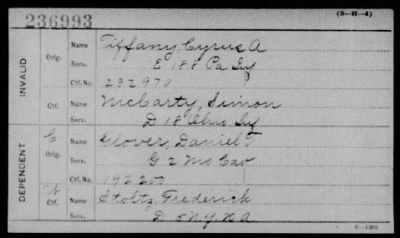 236993
(3-H-4)
INVALID
Orig. Name Tiffany, Cyrus A
Serv. E 188 Pa Inf
Ctf. No. 232970
Ctf. Name McCarty, Simon
Serv. D 18 Ohio Inf
DEPENDENT
C
Orig. Name Glover, Daniel T
Serv. G 2 Mo Cav
Ctf. No. 192200
Ctf. Name Stoltz, Frederick
Serv. D 5 N.Y. H A